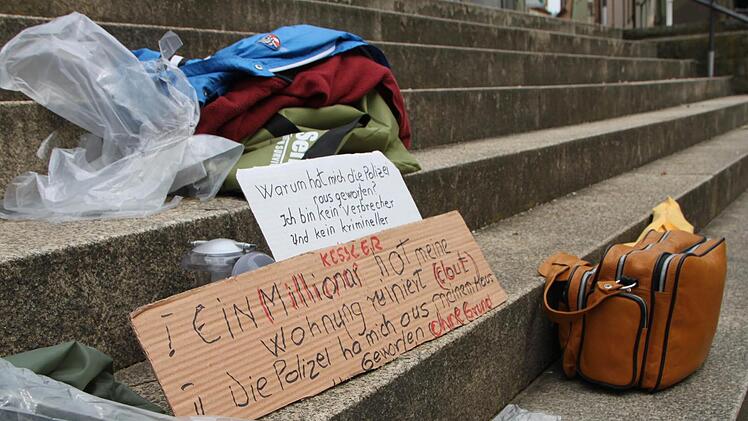 Sei
Warum hat mich die Polizei
raus geworfen?
Ich bin kein Verbrecher
und kein krimineller
KESSLER
! EiN Millionar hat meine
Wohnung ruiniert (kaput)
!! Die Polizei ha mich aus meinem Haus
geworfen ohne Grund